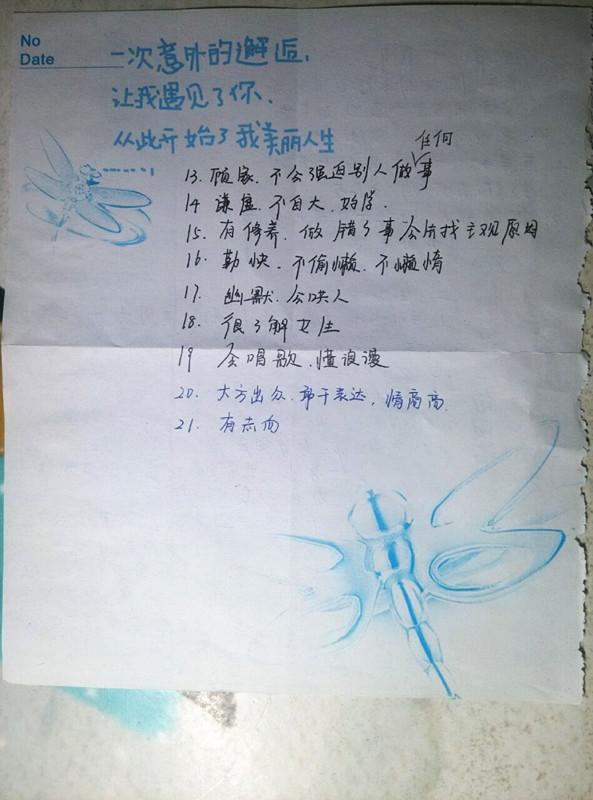 No
Date
一次意外的邂逅，
让我遇见了你、
从此开始了我美丽人生
任何
13. 顾家、不会强迫别人做事
14 谦虚、不自大、好学.
15. 有修养、做错了事会先找主观原因
16. 勤快、不偷懒、不懒惰
17. 幽默、会哄人
18. 很了解女生
19 会唱歌、懂浪漫
20. 大方出众、敢于表达，情商高.
21. 有志向